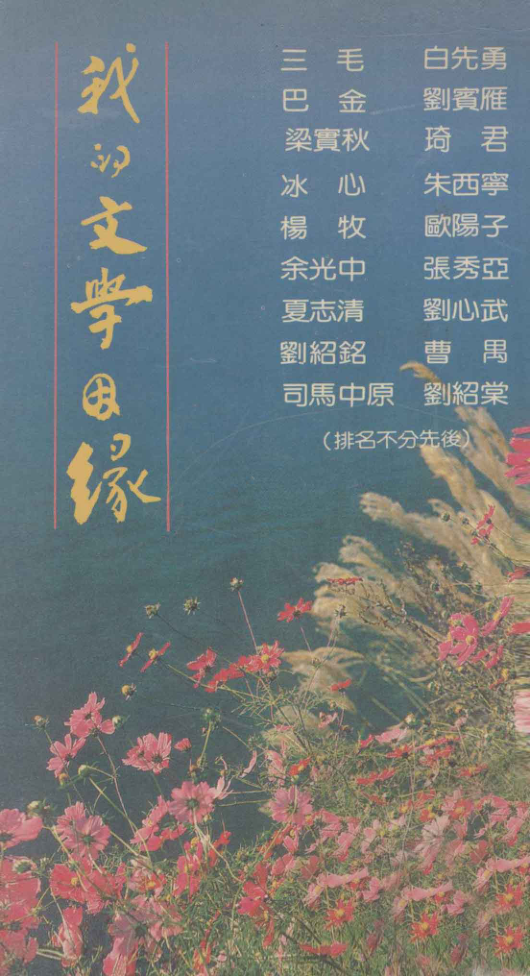 我的文學因緣
三毛 白先勇
巴金 劉賓雁
梁實秋 琦君
冰心 朱西寧
楊牧 歐陽子
余光中 張秀亞
夏志清 劉心武
劉紹銘 曹禺
司馬中原 劉紹棠
（排名不分先後）